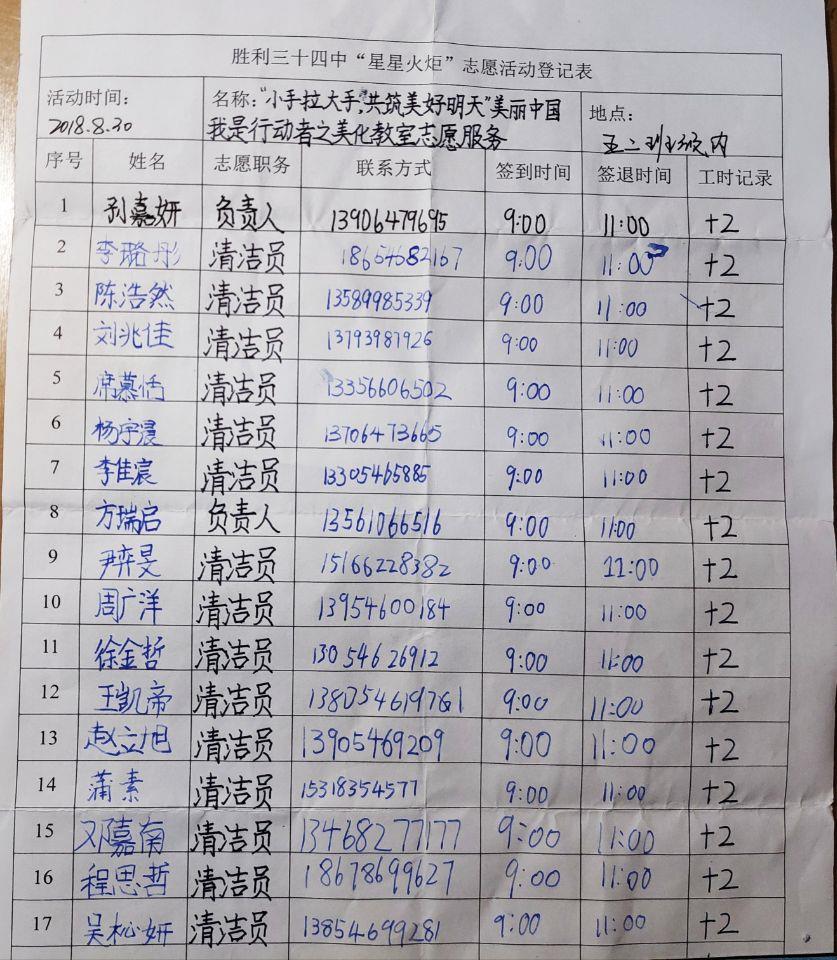 胜利三十四中“星星火炬”志愿活动登记表
活动时间: 名称:“小手拉大手,共筑美好明天”美丽中国 地点:
2018.8.30 我是行动者之美化教室志愿服务 五二班班级内
序号 姓名 志愿职务 联系方式 签到时间 签退时间 工时记录
1 孙嘉妍 负责人 13906479695 9:00 11:00 +2
2 李璐彤 清洁员 18654682167 9:00 11:00 +2
3 陈浩然 清洁员 13589985339 9:00 11:00 +2
4 刘兆佳 清洁员 13793987926 9:00 11:00 +2
5 席慕恬 清洁员 13356606502 9:00 11:00 +2
6 杨宇晨 清洁员 13706473665 9:00 11:00 +2
7 李佳宸 清洁员 13305465885 9:00 11:00 +2
8 方瑞启 负责人 13561066516 9:00 11:00 +2
9 尹弈旻 清洁员 15166228382 9:00 11:00 +2
10 周广洋 清洁员 13954600184 9:00 11:00 +2
11 徐金哲 清洁员 13054626912 9:00 11:00 +2
12 王凯帝 清洁员 13805461976 9:00 11:00 +2
13 赵立旭 清洁员 13905469209 9:00 11:00 +2
14 蒲素 清洁员 15318354577 9:00 11:00 +2
15 邓嘉南 清洁员 13468277177 9:00 11:00 +2
16 程思哲 清洁员 18678699627 9:00 11:00 +2
17 吴松妍 清洁员 13854699281 9:00 11:00 +2